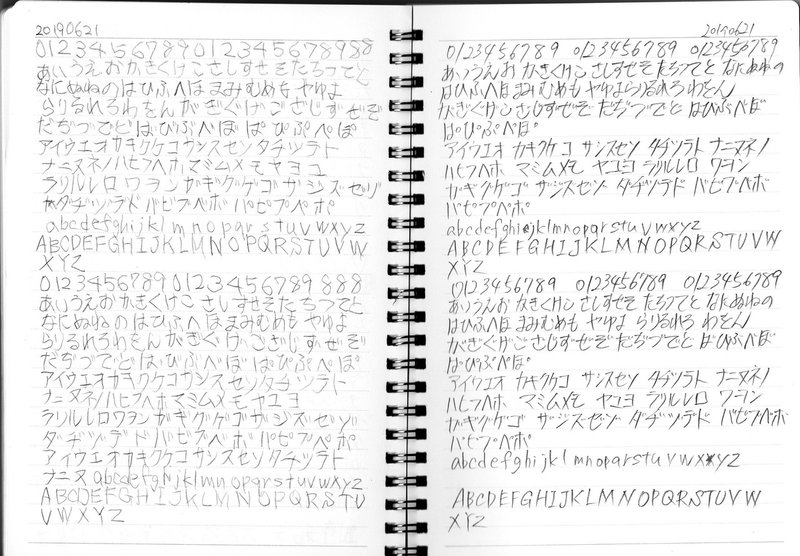 20190621
0123456789 0123456789 88
あいうえおかきくけこさしすせそたちつてと
なにぬねのはひふへほまみむめもやゆよ
らりるれろわをんがぎぐげござじずぜぞ
だぢづでどばびぶべぼぱぴぷぺぽ
アイウエオカキクケコサシスセソタチツテト
ナニヌネノハヒフヘホマミムメモヤユヨ
ラリルレロワヲンガギグゲゴザジズゼゾ
ダヂヅデドバビブベボパピプペポ
abcdefghijklmnopqrstuvwxyz
ABCDEFGHIJKLMNOPQRSTUVW
XYZ
0123456789 0123456789 888
あいうえおかきくけこさしすせそたちつてと
なにぬねのはひふへほまみむめもやゆよ
らりるれろわをんがぎぐげござじずぜぞ
だぢづでどばびぶべぼぱぴぷぺぽ
アイウエオカキクケコサシスセソタチツテト
ナニヌネノハヒフヘホマミムメモヤユヨ
ラリルレロワヲンガギグゲゴザジズゼゾ
ダヂヅデドバビブベボパピプペポ
アイウエオカキクケコサシスセソタチツテト
ナニヌabcdefghijklmnopqrstuvwxyz
ABCDEFGHIJKLMNOPQRSTU
VWXYZ
20190621
0123456789 0123456789 0123456789
あいうえお かきくけこ さしすせそ たちつてと なにぬねの
はひふへほ まみむめも やゆよ らりるれろ わをん
がぎぐげご ざじずぜぞ だぢづでど ばびぶべぼ
ぱぴぷぺぽ
アイウエオ カキクケコ サシスセソ タチツテト ナニヌネノ
ハヒフヘホ マミムメモ ヤユヨ ラリルレロ ワヲン
ガギグゲゴ ザジズゼゾ ダヂヅデド バビブベボ
パピプペポ
abcdefghijklmnopqrstuvwxyz
ABCDEFGHIJKLMNOPQRSTUVW
XYZ
0123456789 0123456789 0123456789
あいうえお かきくけこ さしすせそ たちつてと なにぬねの
はひふへほ まみむめも やゆよ らりるれろ わをん
がぎぐげご ざじずぜぞ だぢづでど ばびぶべぼ
ぱぴぷぺぽ
アイウエオ カキクケコ サシスセソ タチツテト ナニヌネノ
ハヒフヘホ マミムメモ ヤユヨ ラリルレロ ワヲン
ガギグゲゴ ザジズゼゾ ダヂヅデド バビブベボ
パピプペポ
abcdefghijklmnopqrstuvwxyz
ABCDEFGHIJKLMNOPQRSTUVW
XYZ